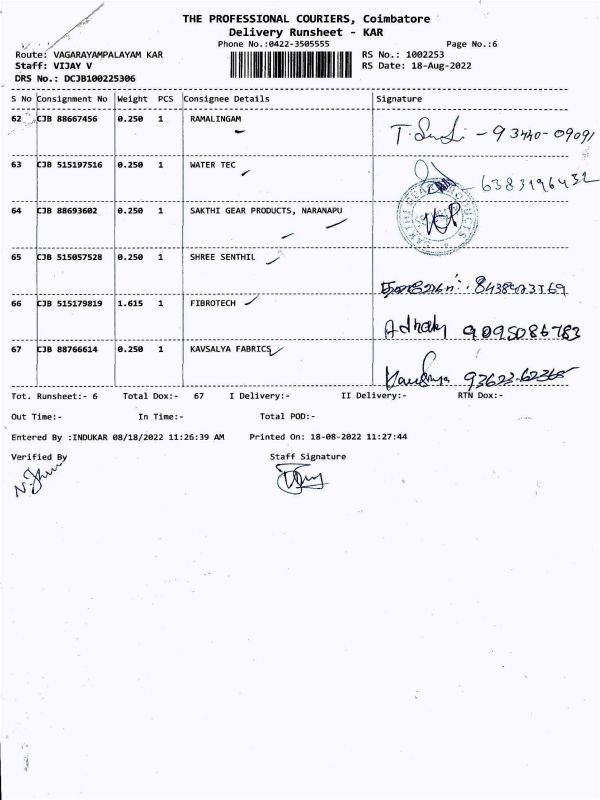 THE PROFESSIONAL COURIERS, Coimbatore
Delivery Runsheet - KAR
Phone No.:0422-3505555 Page No.:6
Route: VAGARAYAMPALAYAM KAR RS No.: 1002253
Staff: VIJAY V RS Date: 18-Aug-2022
DRS No.: DCJB100225306
S No Consignment No Weight PCS Consignee Details Signature
62 CJB 88667456 0.250 1 RAMALINGAM - 93440-09091
63 CJB 515197516 0.250 1 WATER TEC - 6383196432
64 CJB 88693602 0.250 1 SAKTHI GEAR PRODUCTS, NARANAPU
SAKTHI GEAR PRODUCTS
65 CJB 515057528 0.250 1 SHREE SENTHIL
66 CJB 515179819 1.615 1 FIBROTECH 9095086783
67 CJB 88766614 0.250 1 KAVSALYA FABRICS 93623-62365
Tot. Runsheet:- 6 Total Dox:- 67 I Delivery:- II Delivery:- RTN Dox:-
Out Time:- In Time:- Total POD:-
Entered By :INDUKAR 08/18/2022 11:26:39 AM Printed On: 18-08-2022 11:27:44
Verified By Staff Signature